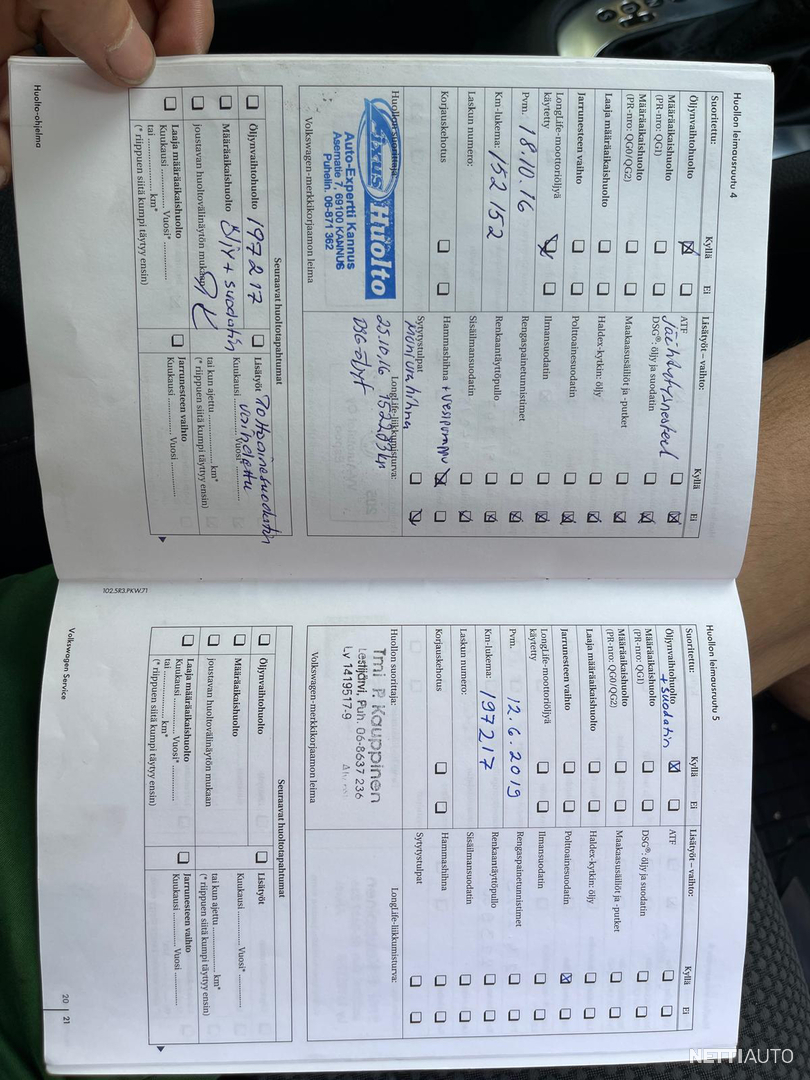 Huollon leimausruutu 4
Suoritettu:
Kyllä
Ei
Öljynvaihtohuolto
Määräaikaishuolto
(PR-nro: QG1)
Määräaikaishuolto
(PR-nro: QG0/QG2)
Laaja määräaikaishuolto
Jarrunesteen vaihto
LongLife-moottoriöljyä
käytetty
Pvm. 18.10.16
Km-lukema: 152 152
Laskun numero:
Korjauskehotus
Huollon suorittaja:
Fixus Huolto
Auto-Expertti Kannus
Asematie 7, 69100 KANNUS
Puhelin. 06-871 362
Volkswagen-merkkikorjaamon leima
Lisätyöt – vaihto:
Kyllä
Ei
ATF
Jäähdytysnesteet
DSG®: öljy ja suodatin
Maakaasusäiliöt ja -putket
Haldex-kytkin: öljy
Polttoainesuodatin
Ilmansuodatin
Rengaspainetunnistimet
Renkaantäyttöpullo
Sisäilmansuodatin
Hammashihna + vesipumppu
Sytytystulpat
Moniurahihna
LongLife-liikkumisturva:
25.10.16 152283 km
DSG-öljyt
Seuraavat huoltotapahtumat
Öljynvaihtohuolto 197217
Määräaikaishuolto Öljy + suodatin
joustavan huoltovälinäytön mukaan
OK
Laaja määräaikaishuolto
Kuukausi ............. Vuosi* .............
tai ..................... km*
(* riippuen siitä kumpi täytyy ensin)
Lisätyöt Polttoainesuodatin
vaihdettu
Kuukausi ............. Vuosi* .............
tai kun ajettu ............. km*
(* riippuen siitä kumpi täyttyy ensin)
Jarrunesteen vaihto
Kuukausi ............. Vuosi .............
Huolto-ohjelma
102.5R3.PKW.71
Huollon leimausruutu 5
Suoritettu:
Kyllä
Ei
Öljynvaihtohuolto
+ suodatin
Määräaikaishuolto
(PR-nro: QG1)
Määräaikaishuolto
(PR-nro: QG0/QG2)
Laaja määräaikaishuolto
Jarrunesteen vaihto
LongLife-moottoriöljyä
käytetty
Pvm. 12.6.2019
Km-lukema: 197217
Laskun numero:
Korjauskehotus
Huollon suorittaja:
Tmi P. Kauppinen
Lestijärvi, Puh. 06-8637 236
Ly 1419517-9
Volkswagen-merkkikorjaamon leima
Lisätyöt – vaihto:
Kyllä
Ei
ATF
DSG®: öljy ja suodatin
Maakaasusäiliöt ja -putket
Haldex-kytkin: öljy
Polttoainesuodatin
Ilmansuodatin
Rengaspainetunnistimet
Renkaantäyttöpullo
Sisäilmansuodatin
Hammashihna
Sytytystulpat
LongLife-liikkumisturva:
Seuraavat huoltotapahtumat
Öljynvaihtohuolto
Määräaikaishuolto
joustavan huoltovälinäytön mukaan
Laaja määräaikaishuolto
Kuukausi ............. Vuosi* .............
tai ..................... km*
(* riippuen siitä kumpi täytyy ensin)
Lisätyöt
Kuukausi ............. Vuosi* .............
tai kun ajettu ............. km*
(* riippuen siitä kumpi täyttyy ensin)
Jarrunesteen vaihto
Kuukausi ............. Vuosi .............
Volkswagen Service
20 | 21
NETTIAUTO